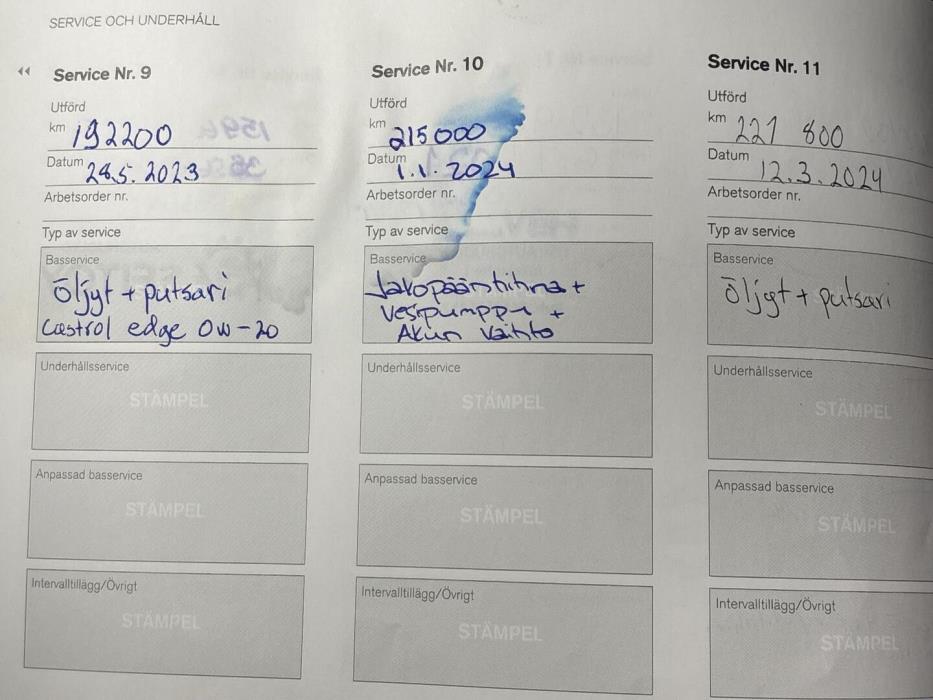 SERVICE OCH UNDERHÅLL
Service Nr. 9
Utförd
km 192200
Datum 28.5. 2023
Arbetsorder nr.
Typ av service
Basservice
Öljyt + putsari
Castrol edge 0w-20
Underhållsservice
STÄMPEL
Anpassad basservice
STÄMPEL
Intervalltillägg/Övrigt
STÄMPEL
Service Nr. 10
Utförd
km 215000
Datum 1.1. 2024
Arbetsorder nr.
Typ av service
Basservice
Jakopäänhihna +
Vesipumppu +
Akun vaihto
Underhållsservice
STÄMPEL
Anpassad basservice
STÄMPEL
Intervalltillägg/Övrigt
STÄMPEL
Service Nr. 11
Utförd
km 221 800
Datum 12.3. 2024
Arbetsorder nr.
Typ av service
Basservice
Öljyt + putsari
Underhållsservice
STÄMPEL
Anpassad basservice
STÄMPEL
Intervalltillägg/Övrigt
STÄMPEL